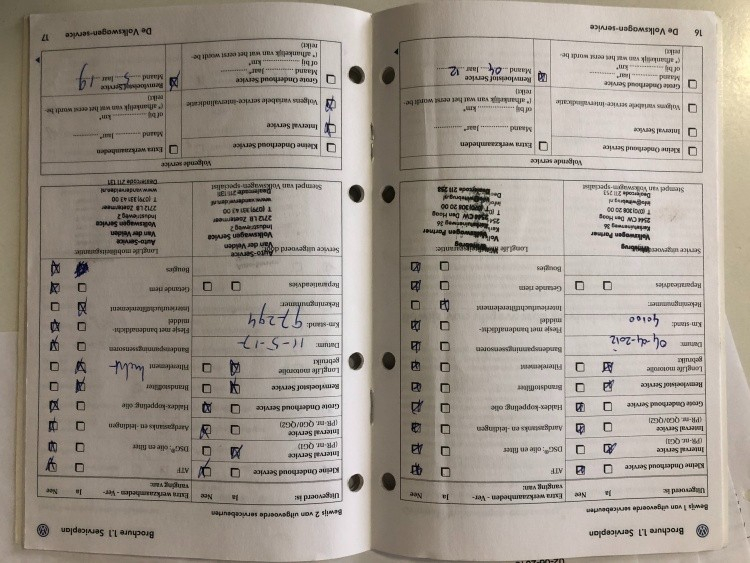 Brochure 1.1 Serviceplan
Bewijs 1 van uitgevoerde servicebeurten
Uitgevoerd is: Ja Nee
Kleine Onderhoud Service
Interval Service
(PR-nr. QG1)
Interval Service
(PR-nr. QG0/QG2)
Grote Onderhoud Service
Remvloeistof Service
LongLife motorolie
gebruikt
Datum: 04-04-2012
Km-stand: 40100
Rekeningnummer:
Reparatieadvies
Extra werkzaamheden - Ver-
vanging van: Ja Nee
ATF
DSG®; olie en filter
Aandgastanks en -leidingen
Haldex-koppeling: olie
Brandstoffilter
Filterelement
Bandenspanningssensoren
Flesje met bandendicht-
middel
Interieurluchtfilterelement
Getande riem
Bougies
Service uitgevoerd
LongLife mobiliteitsgarantie:
Volkswagen Partner
Kerketuinenweg
2544 CW Den Haag
T (070) 308 20 00
Dealercode 211 253
Stempel van Volkswagen-specialist
Volgende service
Kleine Onderhoud Service
Interval Service
Volgens variabele service-intervalindicatie
Grote Onderhoud Service
Maand Jaar*
of bij km*
(*afhankelijk van wat het eerst wordt be-
reikt)
Extra werkzaamheden
Maand Jaar*
of bij km*
(*afhankelijk van wat het eerst wordt be-
reikt)
Remvloeistof Service
Maand 04 Jaar 12
16 De Volkswagen-service
Brochure 1.1 Serviceplan
Bewijs 2 van uitgevoerde servicebeurten
Uitgevoerd is: Ja Nee
Kleine Onderhoud Service
Interval Service
(PR-nr. QG1)
Interval Service
(PR-nr. QG0/QG2)
Grote Onderhoud Service
Remvloeistof Service
LongLife motorolie
gebruikt
Datum: 11-5-17
Km-stand: 97294
Rekeningnummer:
Reparatieadvies
Extra werkzaamheden - Ver-
vanging van: Ja Nee
ATF
DSG®; olie en filter
Aardgastanks en -leidingen
Haldex-koppeling: olie
Brandstoffilter
Filterelement
Bandenspanningssensoren
Flesje met bandendicht-
middel
Interieurluchtfilterelement
Getande riem
Bougies
Service uitgevoerd door:
LongLife mobiliteitsgarantie:
Auto-Service
Van der Velden
Volkswagen Service
Industrieweg
2712 LB Zoetermeer
T (079) 331 43 00
www.vandervelden.nl
Dealercode 211 131
Stempel van Volkswagen-specialist
Volgende service
Kleine Onderhoud Service
Interval Service
Volgens variabele service-intervalindicatie
Grote Onderhoud Service
Maand Jaar*
of bij km*
(*afhankelijk van wat het eerst wordt be-
reikt)
Extra werkzaamheden
Maand Jaar*
of bij km*
(*afhankelijk van wat het eerst wordt be-
reikt)
Remvloeistof Service
Maand 5 Jaar 19
De Volkswagen-service 17